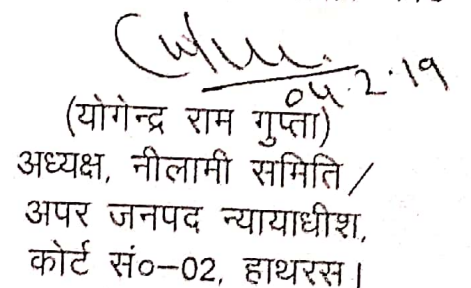 04.2.19
(योगेन्द्र राम गुप्ता)
अध्यक्ष, नीलामी समिति /
अपर जनपद न्यायाधीश,
कोर्ट सं०-02, हाथरस।